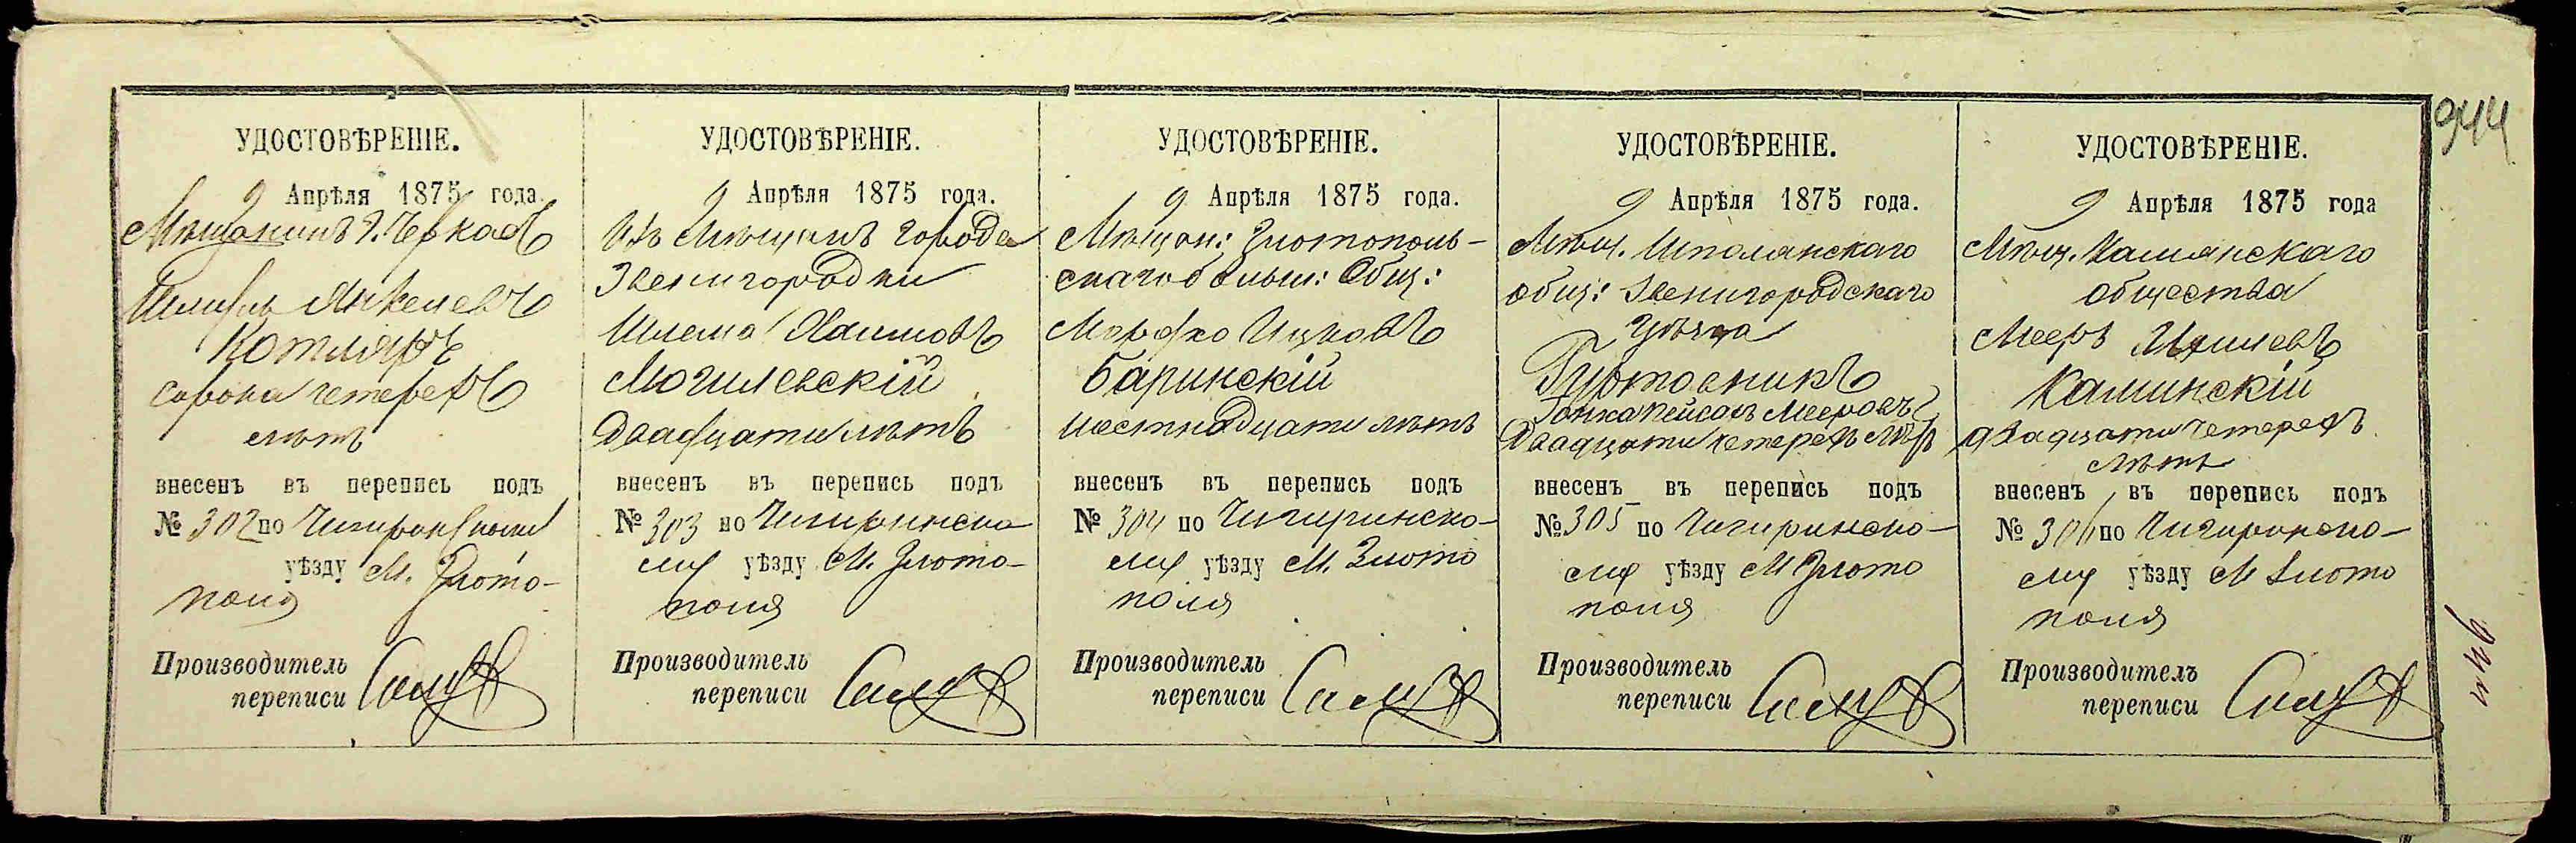 944
УДОСТОВѢРЕНІЕ.
9 Апрѣля 1875 года.
Мѣщанинъ г. Черкасъ
Шмуль Янкелевъ
Котляръ
сорока четерехъ
лѣтъ
внесенъ въ перепись подъ
№ 302 по Чигиринскому
уѣзду М. Злото-
поля
Производитель
переписи
УДОСТОВѢРЕНІЕ.
9 Апрѣля 1875 года.
Изъ Мѣщанъ города
Звенигородки
Шлема Хаимовъ
Могилевскій
двадцати лѣтъ
внесенъ въ перепись подъ
№ 303 по Чигиринско-
му уѣзду М. Злото-
поля
Производитель
переписи
УДОСТОВѢРЕНІЕ.
9 Апрѣля 1875 года.
Мѣщан: Злотополь-
скаго Общ:
Мордко Ицковъ
Баринскій
шестнадцати лѣтъ
внесенъ въ перепись подъ
№ 304 по Чигиринско-
му уѣзду М. Злото
поля
Производитель
переписи
УДОСТОВѢРЕНІЕ.
9 Апрѣля 1875 года.
Мѣщ. Шполянскаго
общ: Звенигородскаго
уѣзда
Гуртовникъ
Пейсахъ Мееровъ
двадцати четерехъ лѣтъ
внесенъ въ перепись подъ
№ 305 по Чигиринско-
му уѣзду М Злото
поля
Производитель
переписи
УДОСТОВѢРЕНІЕ.
9 Апрѣля 1875 года
Мѣщ. общества
Мееръ
Каминскій
двадцати четерехъ
лѣтъ
внесенъ въ перепись подъ
№ 306 по Чигиринско-
му уѣзду М Злото
поля
Производитель
переписи